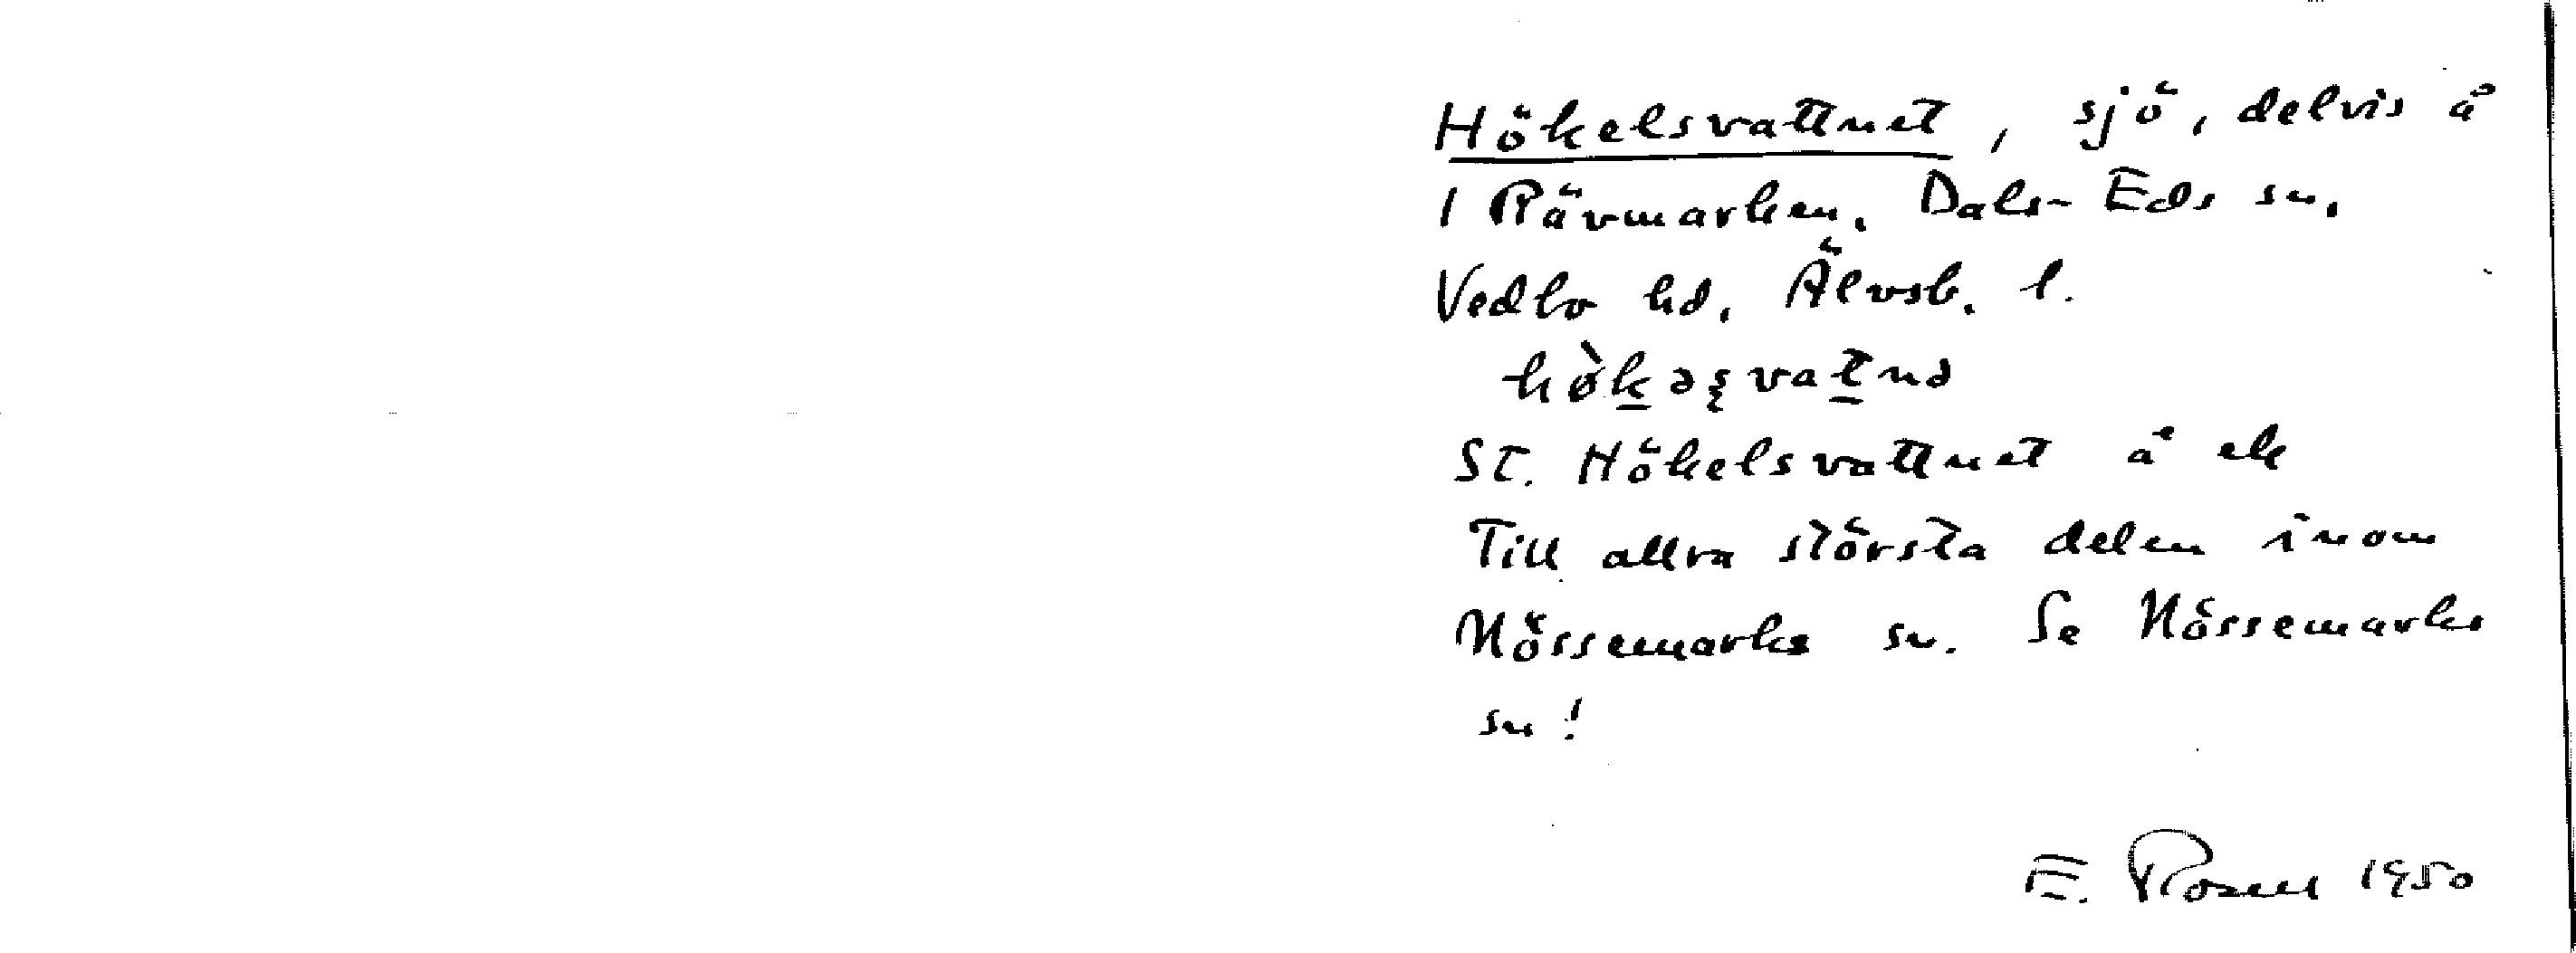 Hökelsvattnet, sjö, delvis å
1 Rävmarken. Dals-Eds sn.
Vedbo hd, Älvsb. l.
St. Hökelsvattnet å ek
Till allra största delen inom
Nössemarks sn. Se Nössemarks
sn!
E. Rosell 1950